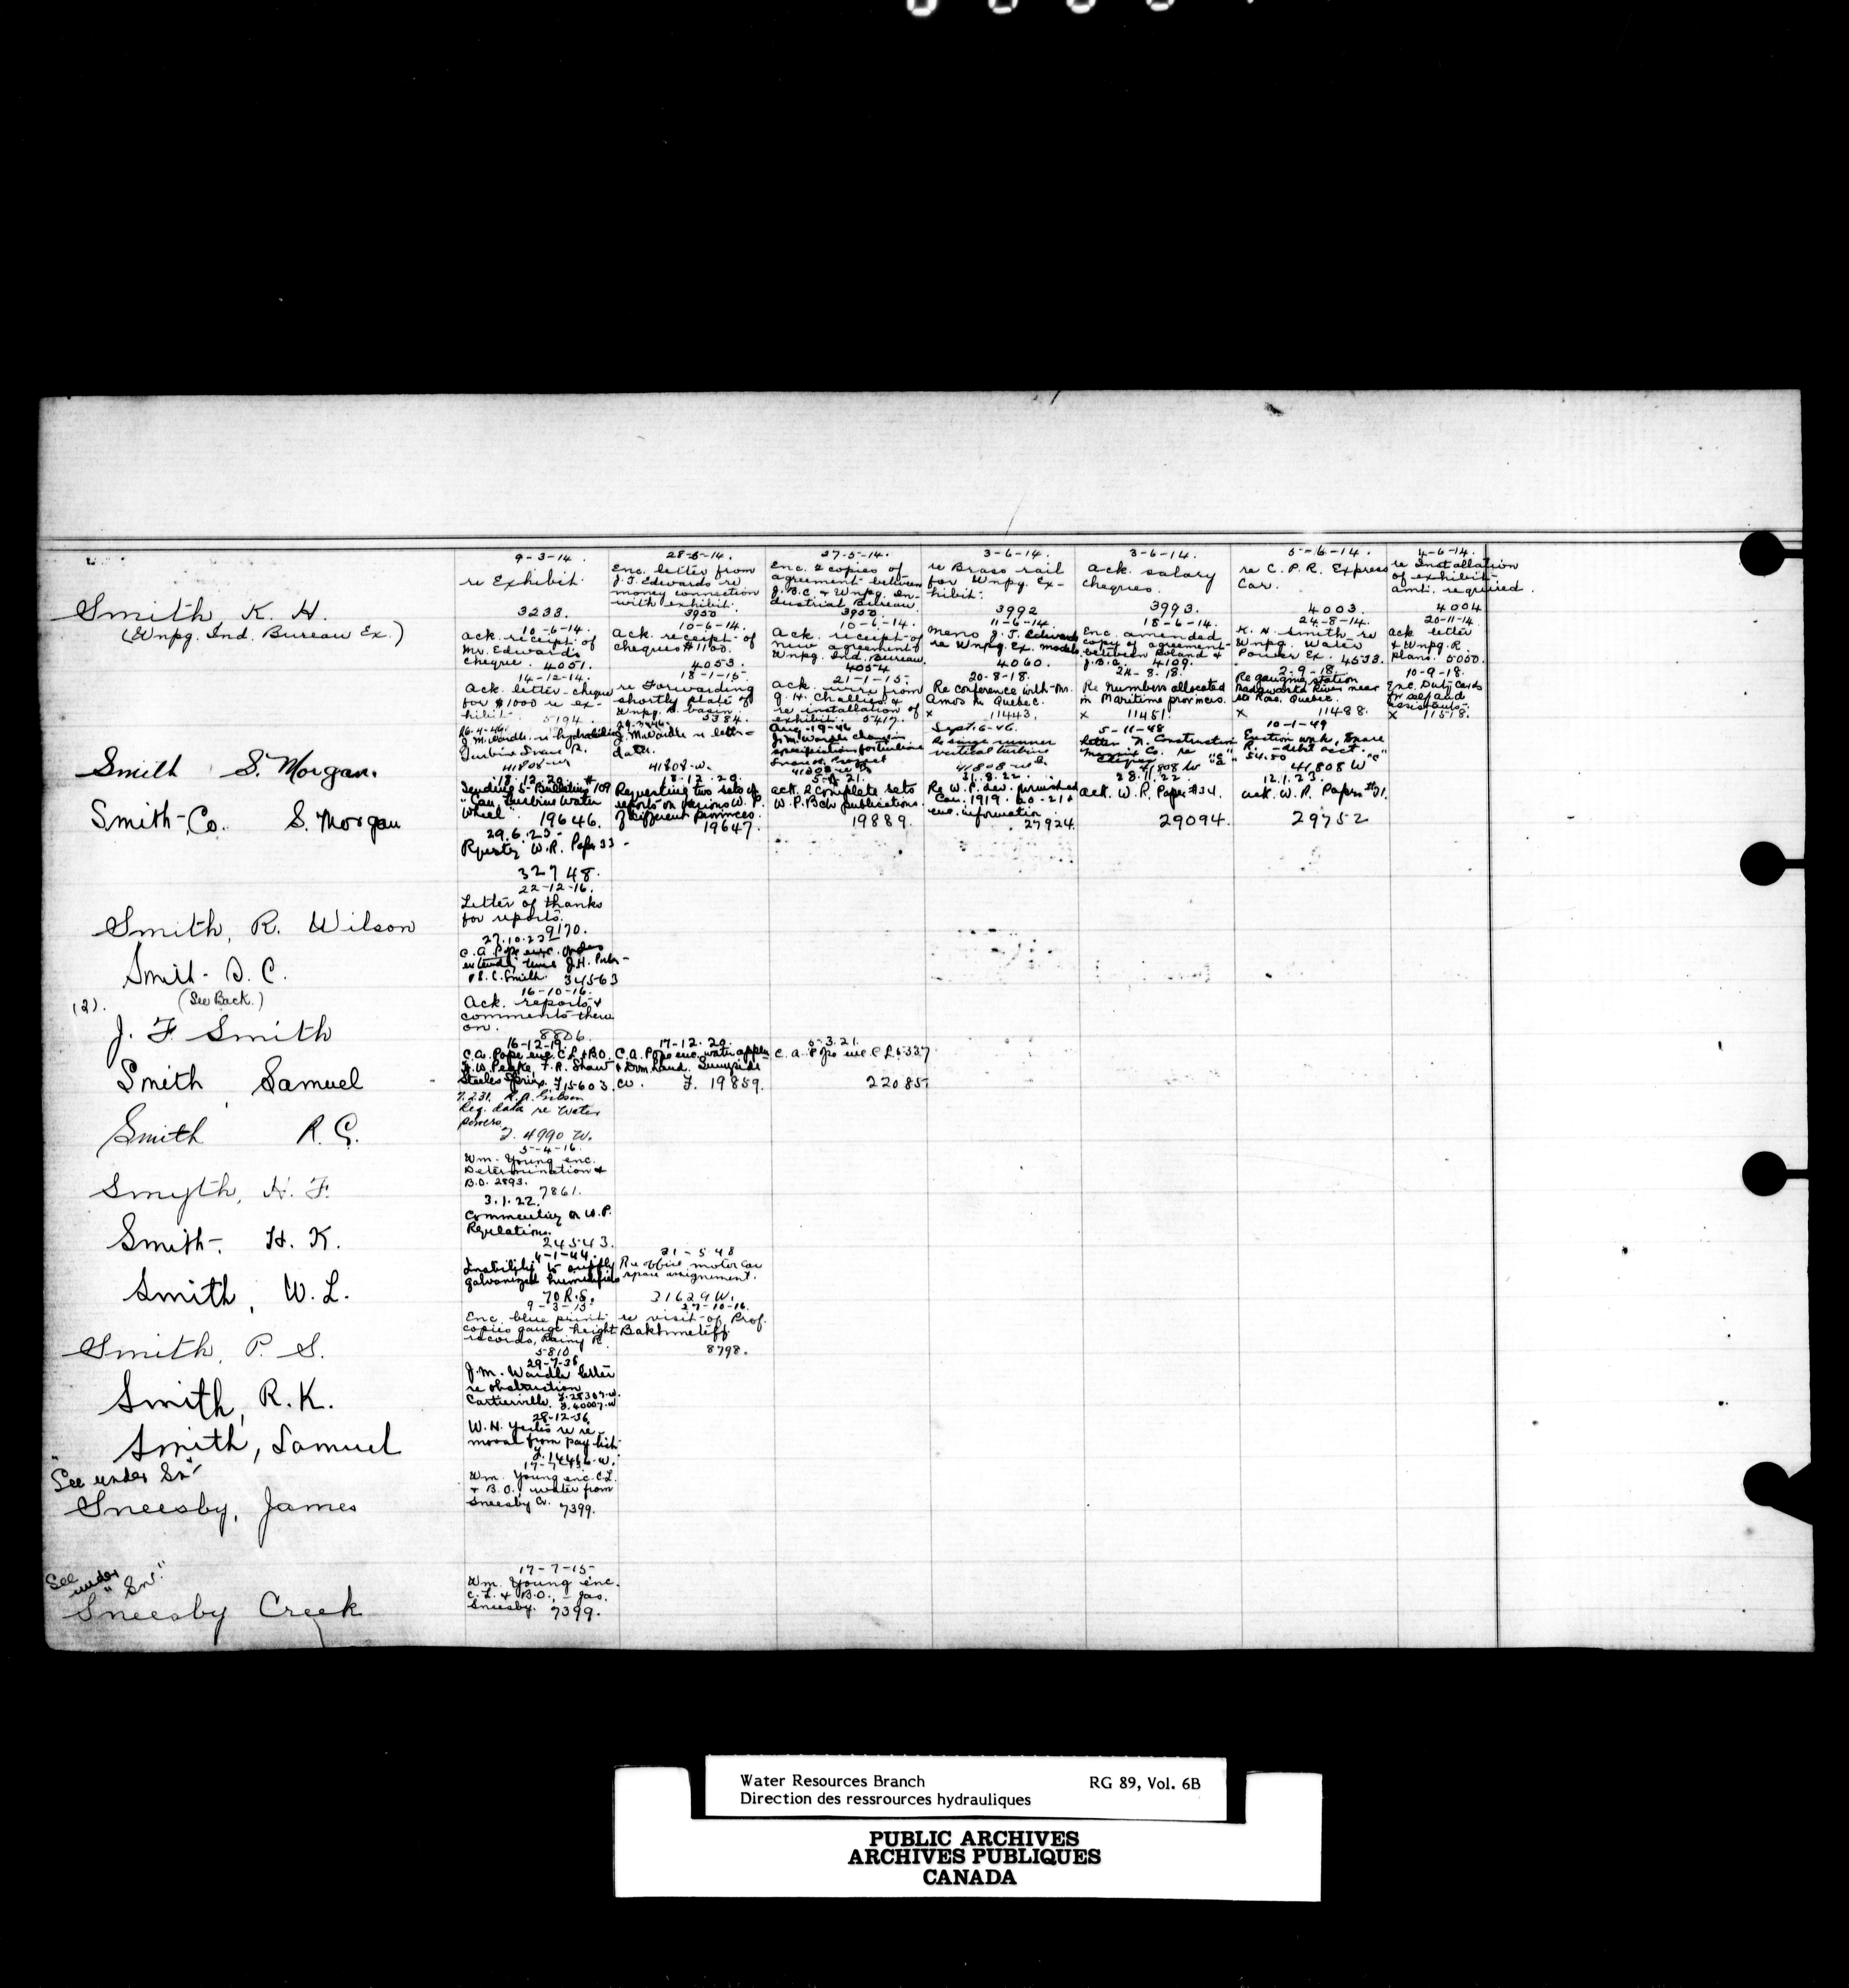 Smith K. H.
(Wnpg. Ind. Bureau Ex.)
9-3-14.
re Exhibit
3238.
28-5-14.
Enc. letter from
J. T. Edwards re
money connection
with exhibit.
3950
27-5-14.
Enc. 2 copies of
agreement between
J.B.C. & Wnpg. In-
dustrial Bureau.
3950
3-6-14.
re Brass rail
for Wnpg. Ex-
hibit.
3992
3-6-14.
Ack. salary
cheques.
3993.
5-6-14.
re C. P. R. Express
Car.
4003.
4-6-14.
re Installation
of exhibit-
amt. required.
4004
10-6-14.
Ack. receipt of
Mr. Edwards
cheque. 4051.
10-6-14.
Ack. receipt of
cheques #1100.
4053.
10-6-14.
Ack. receipt of
new agreement
Wnpg. Ind. Bureau.
4054
11-6-14.
Memo J. T. Edwards
re Wnpg. Ex. models.
4060.
18-6-14.
Enc. amended
copy of agreement
between Boland &
J.B.C. 4109.
24-8-14.
K. H. Smith re
Wnpg. Water
Power Ex. 4533.
20-11-14.
Ack letter
& Wnpg. R.
plans. 5050.
14-12-14.
Ack. letter-cheque
for $1000 re ex-
hibit. 5194.
18-1-15.
re Forwarding
shortly plate of
Wnpg. R. basin.
5384.
21-1-15.
Ack. wire from
J. H. Challies &
re installation of
exhibit. 5417.
20-8-18.
Re conference with Mr.
Amos in Quebec.
x 11443.
24-8-18.
Re numbers allocated
in Maritime provinces.
x 11451.
2-9-18.
Re gauging station
River near
Quebec.
x 11488.
10-9-18.
Enc. Duty Cards
for self and
assistants.
x 11518.
Smith S. Morgan.
26-4-46.
J. M. Wardle re
Turbine Snare R.
41808-W
J. M. Wardle re letter
dated.
41808-W.
Aug-19-46
J. M. Wardle change in
specifications for turbine
Snare R. Project
Sept. 6-46.
Re runner
vertical turbine
5-11-48
Letter N. Construction
Co. re
41808 W "C"
10-1-49
Erection work, Snare
R. - debt acct.
41808 W "C"
Smith-Co. S. Morgan
18.12.20.
Sending 5 Bulletins #109
"Can Turbine Water
Wheel". 19646.
18.12.20.
Requesting two sets of
reports on various W. P.
of different provinces.
19647.
ack. 2 complete sets
W. P. Bch publications.
19889.
31.8.22.
Re W. P. dev. furnished
Can. 1919-20-21 &
enc. information
27924.
28.11.22.
ack. W. R. Paper #34.
29094.
12.1.23.
ack. W. R. Paper #31.
29752
29.6.23-
Requesting W. R. Paper 33-
32748.
Smith, R. Wilson
22-12-16.
Letter of thanks
for reports.
9170.
Smith- S. C.
(See Back.)
27.10.23
C. A. Pope enc. Order
extending time J. H.
& S. C. Smith. 34563
(2).
J. F. Smith
16-10-16.
Ack. reports &
comments there
on. 8806.
Smith, Samuel
16-12-19.
C. A. Pope enc. C L & B.O.
J. W. Peake, F. R. Shaw
Steeles Spring. F. 15603.
17-12-20.
C. A. Pope enc. water appln
& Dom. land. Sunnyside
Cr. F. 19859.
5-3.21.
C. A. Pope enc. C L 6337
22085
Smith R. G.
7.2.31. R. A. Gibson
Req. data re Water
powers.
F. 4990 W.
Smyth, H. F.
5-4-16.
Wm. Young enc.
Determination &
B.O. 2893.
7861.
Smith-. H. K.
3.1.22.
Commenting on W. P.
Regulations.
24543.
Smith, W. L.
4-1-44.
Inability to supply
galvanized humidifiers
70 R.S.
21-5-48
Re office motor car
space assignment.
31629 W.
Smith, P. S.
9-3-15.
Enc. blue print
copies gauge height
records, Rainy R.
5810
27-10-16.
re visit of Prof.
Bakhmeteff.
8798.
Smith, R. K.
29-7-36
J. M. Wardle letter
re obstruction
Cartierville. F. 28307-W.
F. 40007-W
Smith, Samuel
28-12-36.
W. H. Yates re re-
moval from pay-list.
F. 14416-W.
"See under Sn"
Sneesby, James
17-7-15.
Wm. Young enc. C.L.
& B.O., water from
Sneesby Cr. 7399.
See under "Sn".
Sneesby Creek
17-7-15-
Wm. Young enc.
C. L. & B.O., - Jas.
Sneesby. 7399.
Water Resources Branch RG 89, Vol. 6B
Direction des ressrources hydrauliques
PUBLIC ARCHIVES
ARCHIVES PUBLIQUES
CANADA